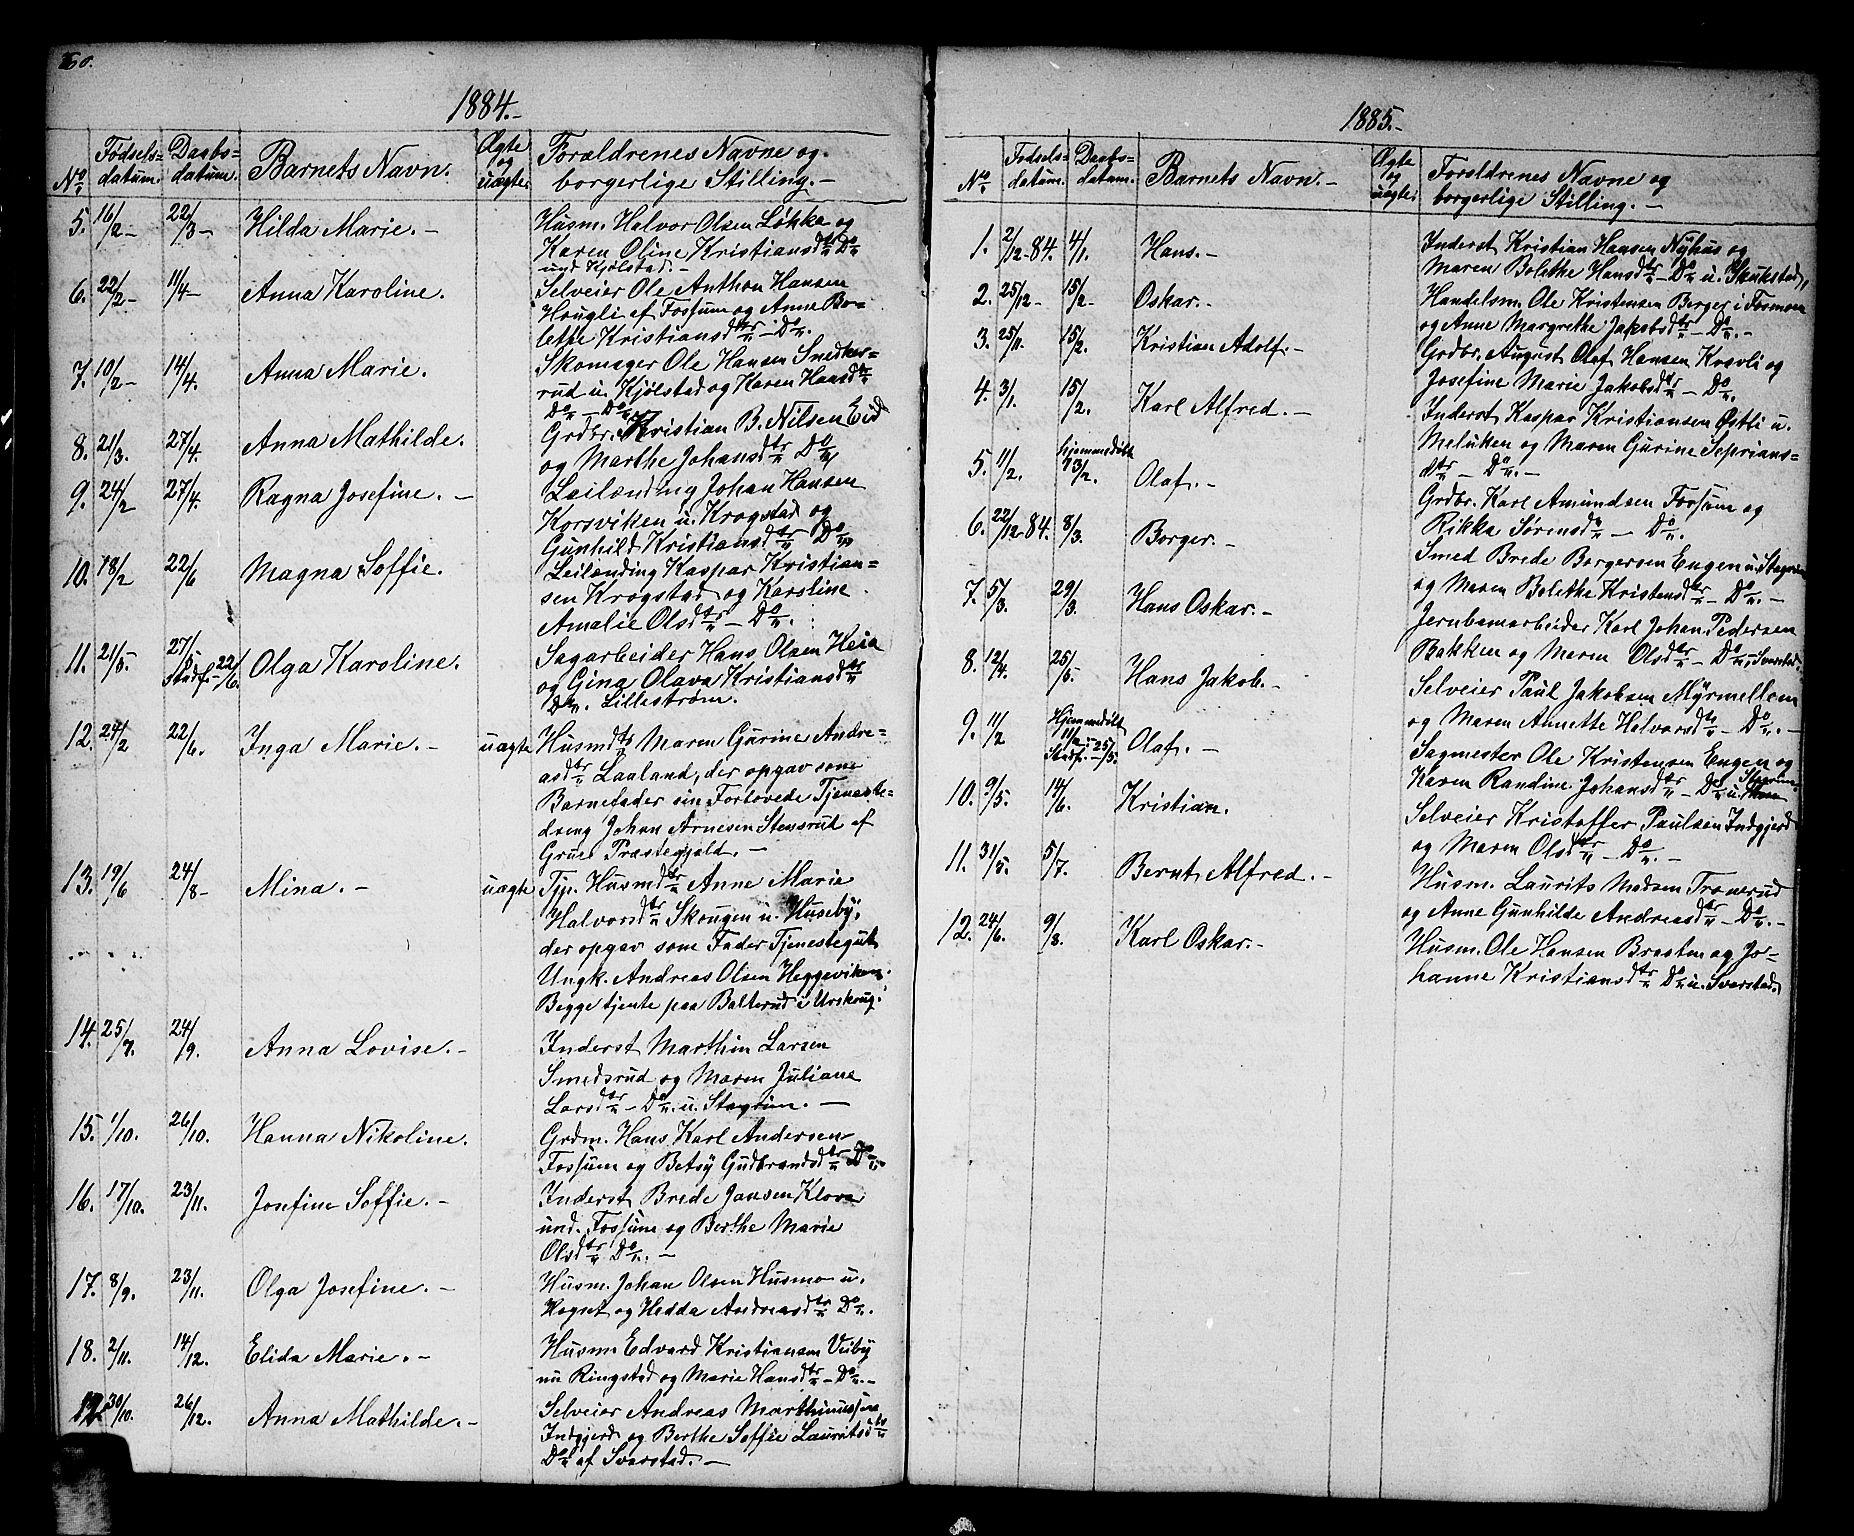 60.
1884.-
No Fødsels= datum. Daabs= datum. Barnets Navn. Ægte og uægte. Forældrenes Navne og borgerlige Stilling. -
5. 16/2- 22/3- Hilda Marie. - Husm. Halvor Olsen Løkka og
Karen Oline Kristiansdtr Do
und. Kjølstad. -
6. 22/2- 11/4- Anna Karoline. Selveier Ole Anthon Hansen
Hougli af Fossum og Anne Bo=
lette Kristiansdtr - Do.
7. 10/2- 14/4. Anna Marie. Skomager Ole Hansen Smedker=
rud u. Kjølstad og Karen Hansdtr
Do - Do.
8. 21/3. 27/4. Anna Mathilde. Grdbr. Kristian B. Nilsen Eid
og Marthe Johansdtr Do
9. 24/2 27/4. Ragna Josefine. - Leilænding Johan Hansen
Korsviken u. Krogstad og
Gunhild Kristiansdtr Do
10. 18/2 22/6 Magna Soffie. Leilænding Kaspar Kristian=
sen Krogstad og Karoline
Amalie Olsdtr - Do.
11. 21/5. 27/5 Stadf. 22/6. Olga Karoline. Sagarbeider Hans Olsen Heia
og Gina Olava Kristiansdtr
Do. Lillestrøm.
12. 24/2 22/6. Inga Marie. - uægte Husmdtr Maren Gurine Andre=
asdtr Laaland, der opgav som
Barnefader sin Forlovede Tjeneste=
dreng Johan Arnesen Stensrud af
Grue Præstegjæld. -
13. 19/6 24/8- Mina. - uægte Tjp. Husmdtr Anne Marie
Halvorsdtr Skougen u. Huseby,
der opgav som Fader Tjenestegut
Ungk. Andreas Olsen Heggeviken.
Begge tjente paa Balterud i Urskoug.
14. 25/7. 24/9. Anna Lovise. - Inderst Marthin Larsen
Smedsrud og Maren Juliane
Larsdtr - Do. u. Stagrim. -
15. 1/10. 26/10. Hanna Nikoline. Grdm. Hans Karl Andersen
Fossum og Betsy Gudbrandsdtr Do.
16. 17/10. 23/11. Josefine Soffie. - Inderst Brede Jansen Klova
und. Fossum og Berthe Marie
Olsdtr Do. -
17. 8/9. 23/11. Olga Josefine. - Husm. Johan Olsen Husmo u.
Kognet og Hedda Andreasdtr Do.
18. 2/11. 14/12. Elida Marie. - Husm Edvard Kristiansen Viiby
nu Ringstad og Marie Hansdtr - Do. -
19. 30/10. 26/12. Anna Mathilde. - Selveier Andreas Marthinussen
Indgjerd og Berthe Soffie Lauritsdtr
Do af Sverstad. -
1885.-
No Fødsels= datum. Daabs= datum. Barnets Navn. - Ægte og uægte. Forældrenes Navne og borgerlige Stilling. -
1. 2/12-84. 4/1. Hans. - Inderst Kristian Hansen Nyhus og
Maren Bolethe Hansdtr - Do u. Skukstad,
2. 25/12- 15/2- Oskar. - Handelsm. Ole Kristensen Berger i Fosmoen
og Anne Margrethe Jakobsdtr - Do. -
3. 25/11. 15/2. Kristian Adolf. - Grdbr. August Olaf Hansen Kosvli og
Josefine Marie Jakobsdtr - Do.
4. 3/1. 15/2. Karl Alfred. - Inderst Kaspar Kristiansen Østli u.
Meluken og Maren Gurine Seprians=
dtr - Do. -
5. 11/2. hjemmedøbt 13/2. Olaf. - Grdbr. Karl Amundsen Fossum og
Rikka Sørensdtr - Do.
6. 22/12-84. 8/3. Borger. - Smed Brede Borgersen Engen u. Stagrim
og Maren Bolethe Kristensdtr - Do. -
7. 5/3. 29/3. Hans Oskar. - Jernbanearbeider Karl Johan Pedersen
Bakken og Maren Olsdtr - Do u. Sverstad.
8. 12/4. 25/5. Hans Jakob. - Selveier Paul Jakobsen Myrmellem
og Maren Annette Halvorsdtr - Do. -
9. 11/2 Hjemmedøbt 11/2 Stadf. - 25/5. Olaf. - Sagmester Ole Kristensen Engen og
Karen Randine Johansdtr - Do u. Stagrim.
10. 9/5. 14/6. Kristian. Selveier Kristoffer Paulsen Indgjerd
og Maren Olsdtr - Do. -
11. 31/5. 5/7. Bernt Alfred. - Husm. Laurits Madsen Tronerud
og Anne Gunhilde Andreasdtr - Do. -
12. 24/6. 9/8. Karl Oskar. - Husm. Ole Hansen Bråten og Jo=
hanne Kristiansdtr Do u. Sverstad.